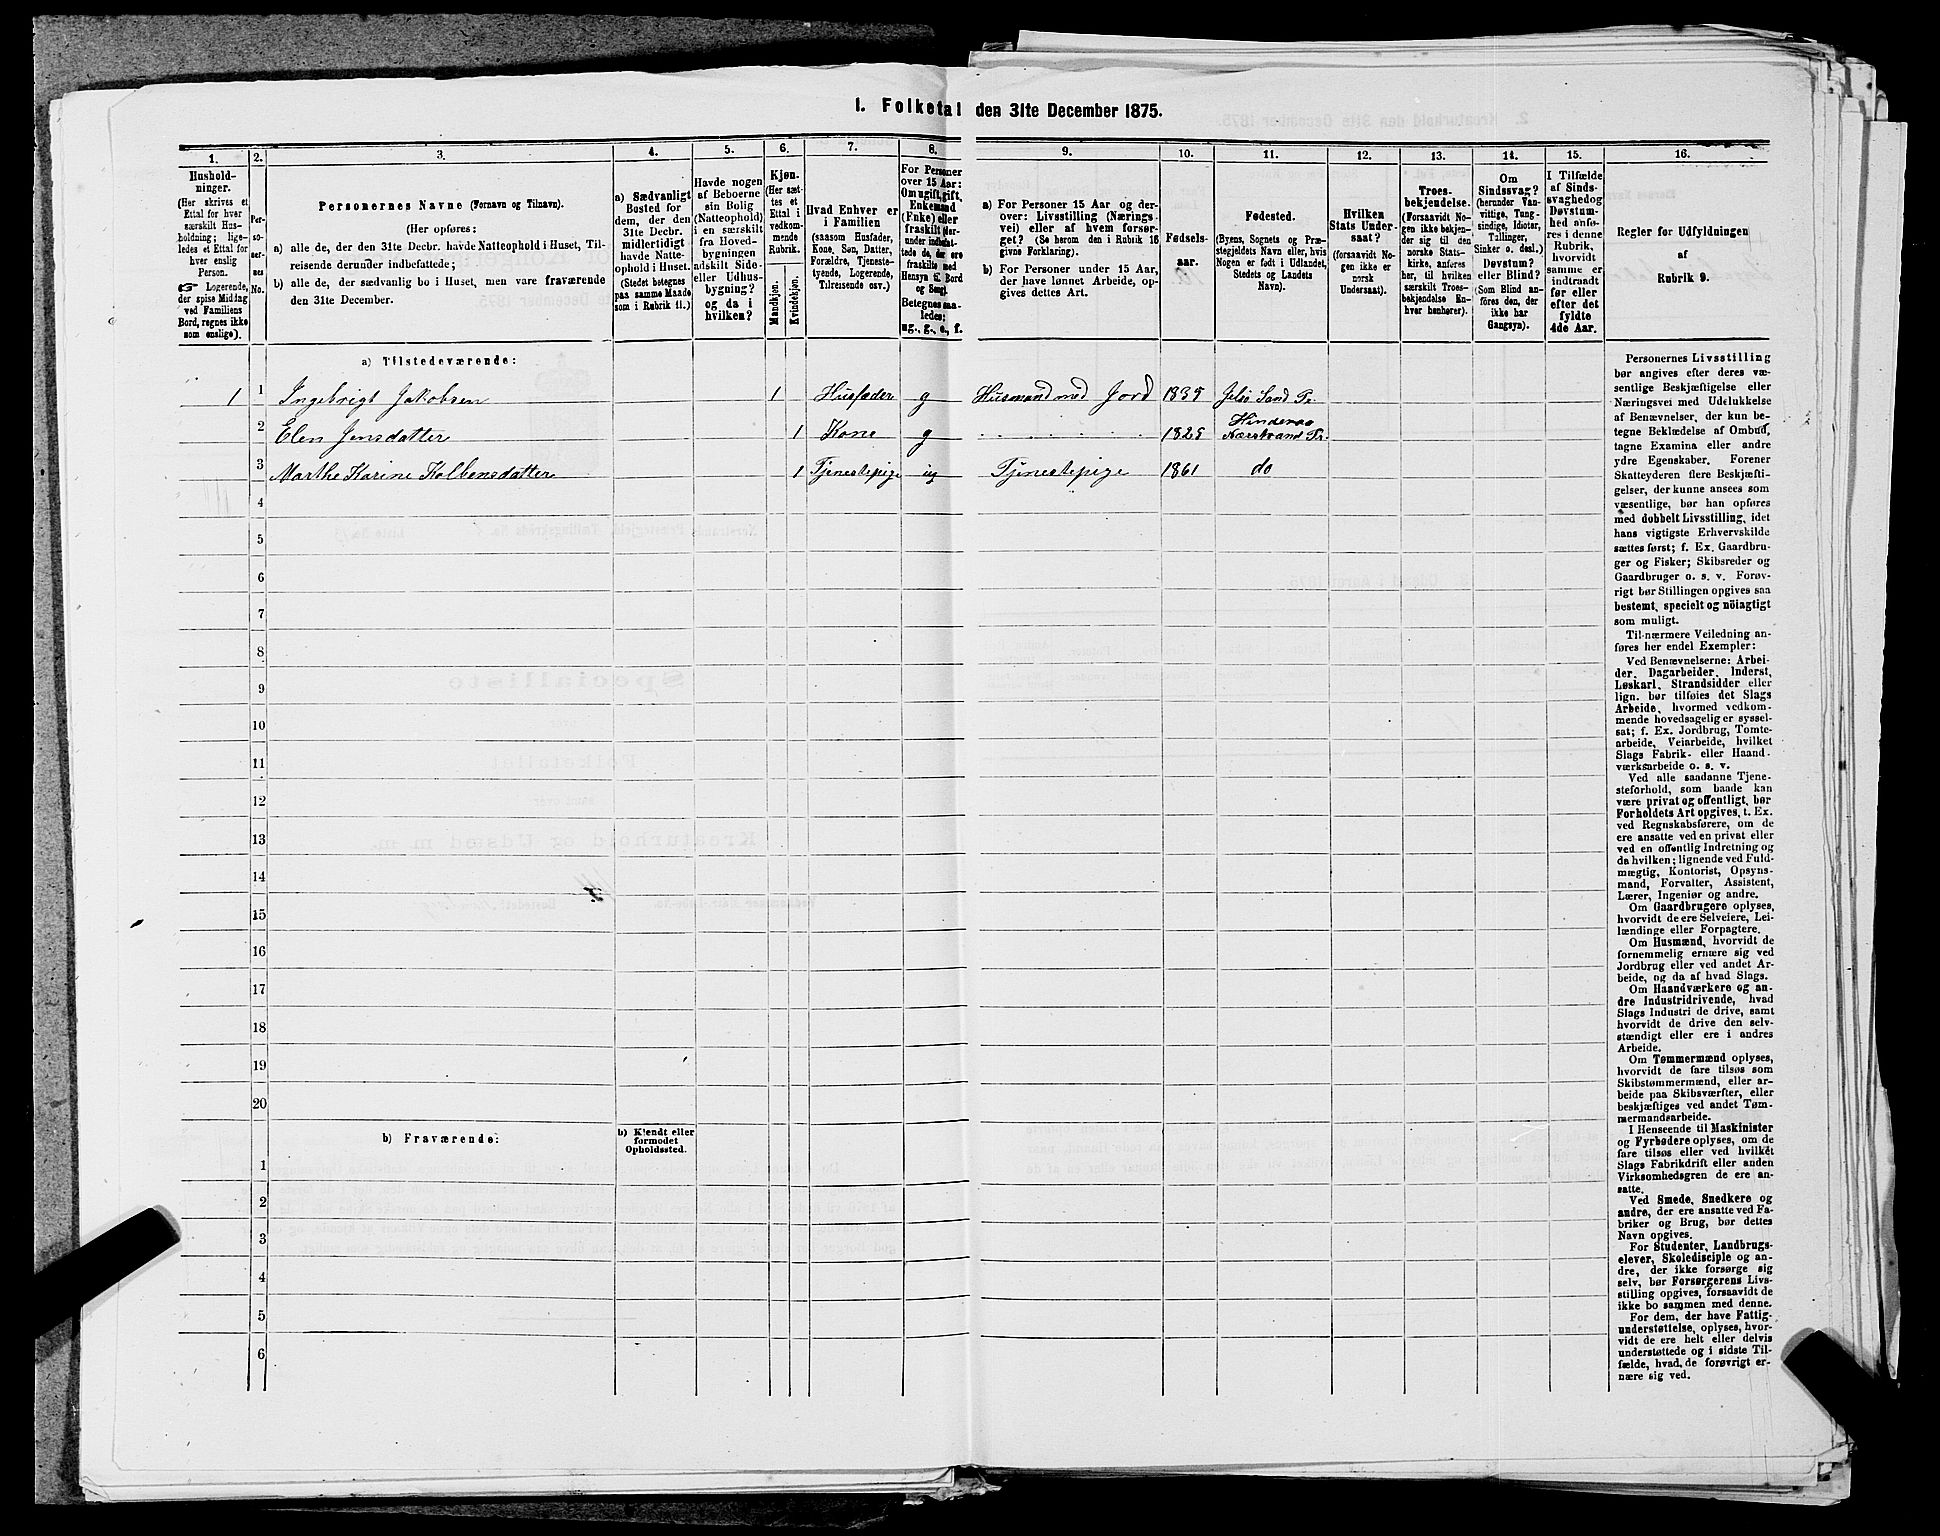 1. Folketal den 31te December 1875.
1.
2.
3.
4.
5.
6.
7.
8.
9.
10.
11.
12.
13.
14.
15.
16.
Hushold-
ninger.
(Her skrives et
Ettal for hver
særskilt Hus-
holdning; lige-
ledes et Ettal for
hver enslig
Person.
☞ Logerende,
der spise Middag
ved Familiens
Bord, regnes ikke
som enslige).
Per-
so-
ner-
nes
No.
Personernes Navne (Fornavn og Tilnavn).
(Her opføres:
a) alle de, der den 31te Decbr. havde Natteophold i Huset, Til-
reisende derunder indbefattede;
b) alle de, der sædvanlig bo i Huset, men vare fraværende
den 31te December.
a) Sædvanligt
Bosted for
dem, der den
31te Decbr.
midlertidigt
havde Natte-
ophold i Huset.
(Stedet betegnes
paa samme Maade
som i Rubrik 11.)
Havde nogen
af Beboerne
sin Bolig
(Natteophold)
i en særskilt
fra Hoved-
bygningen
adskilt Side-
eller Udhus-
bygning?
og da i
hvilken?
Kjøn.
(Her sæt-
tes et
Ettal i
vedkom-
mende
Rubrik.
Mandkjøn.
Kvindekjøn.
Hvad Enhver er
i Familien
(saasom Husfader,
Kone, Søn, Datter,
Forældre, Tjeneste-
tyende, Logerende,
Tilreisende osv.)
For Personer
over 15 Aar:
Om ugift, gift,
Enkemand
(Enke) eller
fraskilt (der-
under indbefat-
tede de, der ere
fraskilte med
Hensyn til Bord
og Seng).
Betegnes saa-
ledes:
ug., g., e., f.
a) For Personer 15 Aar og der-
over: Livsstilling (Nærings-
vei) eller af hvem forsør-
get? (Se herom den i Rubrik 16
givne Forklaring).
b) For Personer under 15 Aar,
der have lønnet Arbeide, op-
gives dettes Art.
Fødsels-
aar.
Fødested.
(Byens, Sognets og Præ-
stegjeldets Navn eller, hvis
Nogen er født i Udlandet,
Stedets og Landets
Navn).
Hvilken
Stats Under-
saat?
(forsaavidt No-
gen ikke er
norsk
Undersaat).
Troes-
bekjendelse.
(Forsaavidt No-
gen ikke bekjen-
der sig til den
norske Stats-
kirke, anføres
her, til hvilken
særskilt Troes-
bekjendelse En-
hver henhører).
Om
Sindssvag?
(herunder Van-
vittige, Tung-
sindige, Idioter,
Tullinger,
Sinker o. desl.)
Døvstum?
eller Blind?
(Som Blind an-
føres den, der
ikke har
Gangsyn).
I Tilfælde
af Sinds-
svaghed og
Døvstum-
hed anfø-
res i denne
Rubrik,
hvorvidt
samme er
indtraadt
før eller
efter det
fyldte
4de Aar.
Regler for Udfyldningen
af
Rubrik 9.
a) Tilstedeværende:
1 1 Ingebrigt Jakobsen 1 Husfader g Husmand med Jord 1835 Jelsø Sand Pr.
2 Elen Jensdatter 1 Kone g 1825 Hinderaa Nærstrand Pr.
3 Marthe Karine Kolbensdatter 1 Tjenestepige ug Tjenestepige 1861 do
4
5
6
7
8
9
10
11
12
13
14
15
16
17
18
19
20
b) Fraværende:
b) Kjendt eller
formodet
Opholdssted.
1
2
3
4
5
6
Personernes Livsstilling
bør angives efter deres væ-
sentlige Beskjæftigelse eller
Næringsvei med Udelukkelse
af Benævnelser, der kun be-
tegne Beklædelse af Ombud,
tagne Examina eller andre
ydre Egenskaber. Forener
Skatteyderen flere Beskjæfti-
gelser, der kunne ansees som
væsentlige, bør han opføres
med dobbelt Livsstilling, idet
hans vigtigste Erhvervskilde
sættes først; f. Ex. Gaardbru-
ger og Fisker; Skibsreder og
Gaardbruger o. s. v. Forøv-
rigt bør Stillingen opgives saa
bestemt, specielt og nöiagtigt
som muligt.
Til nærmere Veiledning an-
føres her endel Exempler:
Ved Benævnelserne: Arbei-
der, Dagarbeider, Inderst,
Løskarl, Strandsidder eller
lign. bør tilføies det Slags
Arbeide, hvormed vedkom-
mende hovedsagelig er syssel-
sat; f. Ex. Jordbrug, Tomte-
arbeide, Veiarbeide, hvilket
Slags Fabrik- eller Haand-
værksarbeide o. s. v.
Ved alle saadanne Tjene-
steforhold, som baade kan
være privat og offentligt, bør
Forholdets Art opgives, t. Ex.
ved Regnskabsførere, om de
ere ansatte ved en privat eller
ved en offentlig Indretning og
da hvilken; lignende ved Fuld-
mægtig, Kontorist, Opsyns-
mand, Forvalter, Assistent,
Lærer, Ingeniør og andre.
Om Gaardbrugere oplyses,
hvorvidt de ere Selveiere, Lei-
lændinge eller Forpagtere.
Om Husmænd, hvorvidt de
fornemmelig ernære sig ved
Jordbrug eller ved andet Ar-
beide, og da af hvad Slags.
Om Haandværkere og an-
dre Industridrivende, hvad
Slags Industri de drive, samt
hvorvidt de drive den selv-
stændigt eller ere i andres
Arbeide.
Om Tømmermænd oplyses,
hvorvidt de fare tilsøs som
Skibstømmermænd, eller ar-
beide paa Skibsværfter, eller
beskjæftiges ved andet Tøm-
mermandsarbeide.
I Henseende til Maskinister
og Fyrbødere oplyses, om de
fare tilsøs eller ved hvilket
Slags Fabrikdrift eller anden
Virksomhedsgren de ere an-
satte.
Ved Smede, Snedkere og
andre, der ere ansatte ved Fa-
briker og Brug, bør dettes
Navn opgives.
For Studenter, Landbrugs-
elever, Skoledisciple og an-
dre, der ikke forsørge sig
selv, bør Forsørgerens Livs-
stilling opgives, forsaavidt de
ikke bo sammen med denne.
For dem, der have Fattig-
understøttelse, oplyses, hvor-
vidt de ere helt eller delvis
understøttede og i sidste Til-
fælde, hvad de forøvrigt er-
nære sig ved.